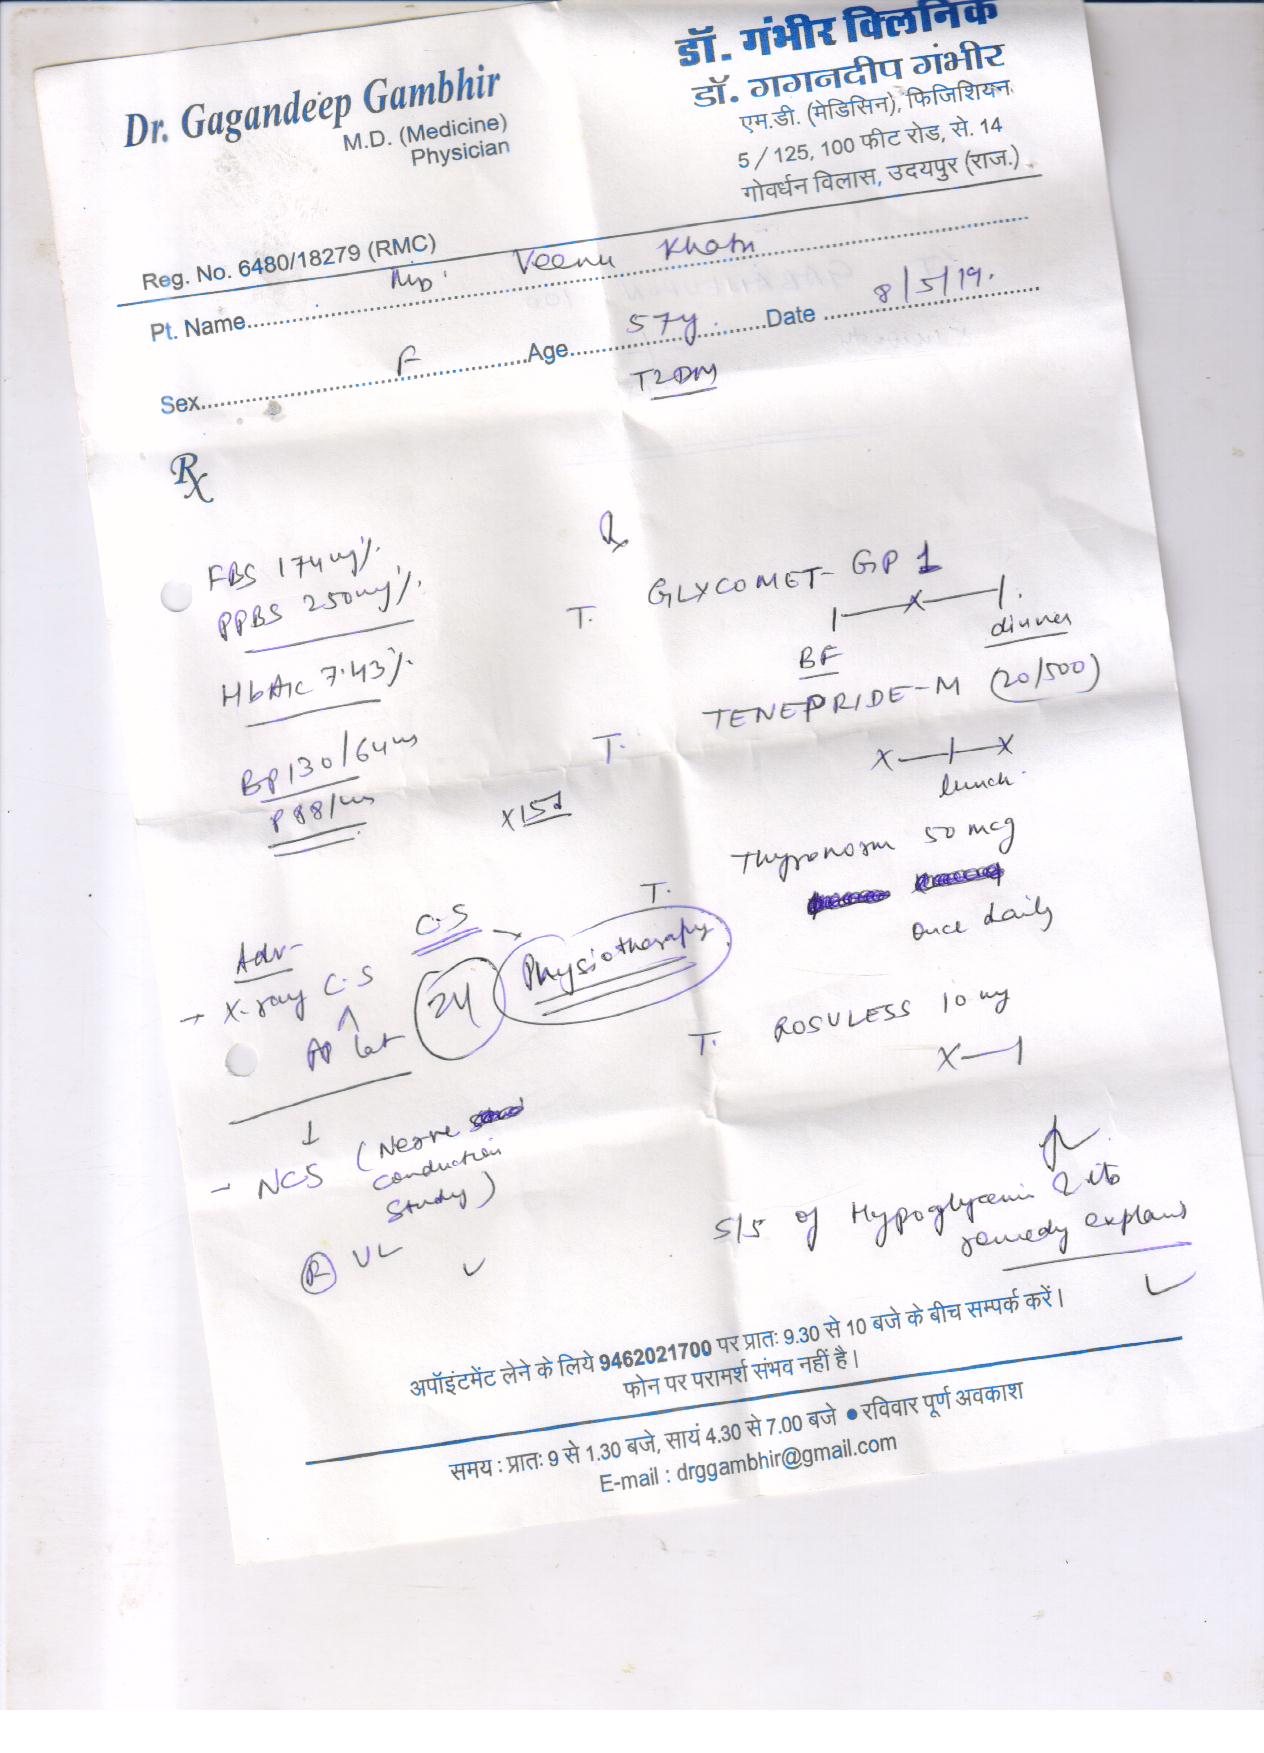 Dr. Gagandeep Gambhir
M.D. (Medicine)
Physician
डॉ. गंभीर क्लिनिक
डॉ. गगनदीप गंभीर
एम.डी. (मेडिसिन), फिजिशियन
5 / 125, 100 फीट रोड, से. 14
गोवर्धन विलास, उदयपुर (राज.)
Reg. No. 6480/18279 (RMC)
Pt. Name Veenu Khatri
Sex F Age 57y Date 8/5/19.
T2DM
Rx
FBS 174mg%
PPBS 250mg%
HbA1c 7.43%
BP 130/64
P 88/
Rx
T. GLYCOMET-GP 1
1—x—1
BF dinner
T. TENEPRIDE-M (20/500)
x—1—x
lunch
x15d
T. Thyronorm 50 mcg
once daily
C.S → Physiotherapy
Adv-
→ X-ray C.S
AP Lat
T. ROSULESS 10 mg
x—1
- NCS (Nerve
conduction
study)
(R) UL
S/S of Hypoglycemia & its
remedy explained
अपॉइंटमेंट लेने के लिये 9462021700 पर प्रातः 9.30 से 10 बजे के बीच सम्पर्क करें।
फोन पर परामर्श संभव नहीं है।
समय : प्रातः 9 से 1.30 बजे, सायं 4.30 से 7.00 बजे ● रविवार पूर्ण अवकाश
E-mail : drggambhir@gmail.com